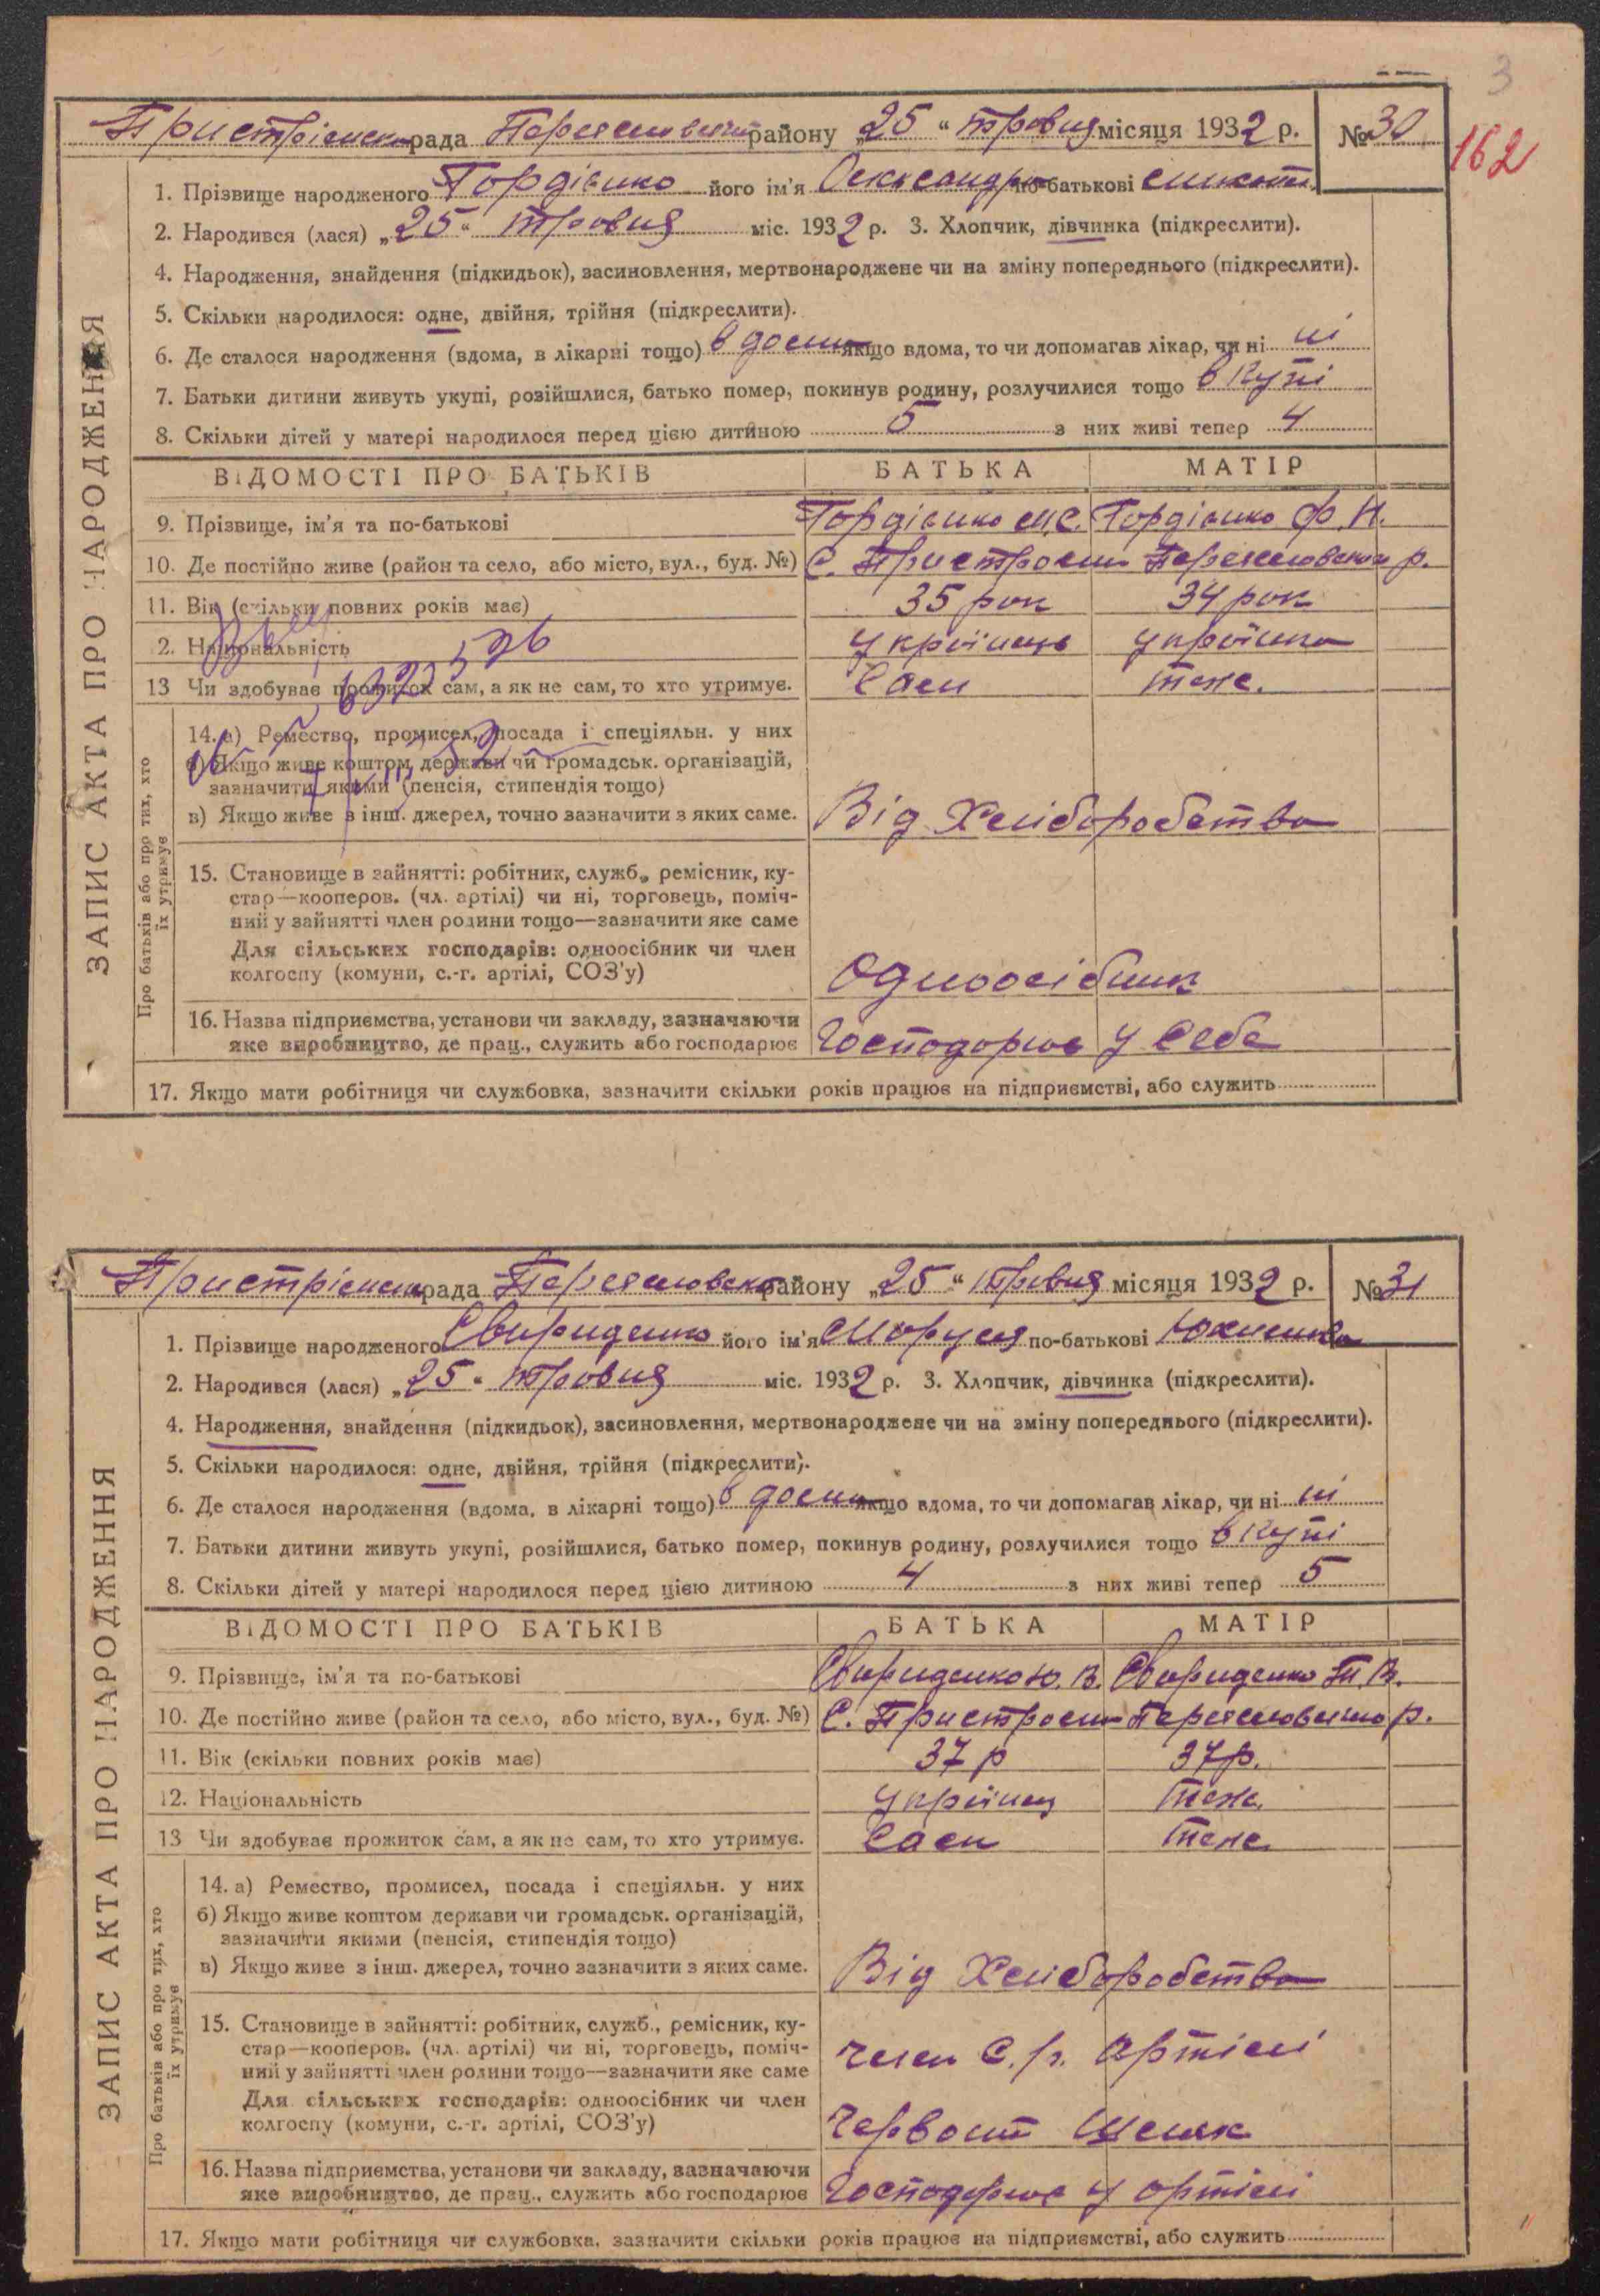 3
Пристрімська рада Переяславського району „25“ травня місяця 1932 р. №30
162
1. Прізвище народженого Гордієнко його ім'я Олександра по-батькові
2. Народився (лася) „25“ травня міс. 1932 р. 3. Хлопчик, дівчинка (підкреслити).
4. Народження, знайдення (підкидьок), засиновлення, мертвонароджене чи на зміну попереднього (підкреслити).
5. Скільки народилося: одне, двійня, трійня (підкреслити).
6. Де сталося народження (вдома, в лікарні тощо) в дома якщо вдома, то чи допомагав лікар, чи ні ні
7. Батьки дитини живуть укупі, розійшлися, батько помер, покинув родину, розлучилися тощо вкупі
8. Скільки дітей у матері народилося перед цією дитиною 5 з них живі тепер 4
ЗАПИС АКТА ПРО НАРОДЖЕННЯ
ВІДОМОСТІ ПРО БАТЬКІВ БАТЬКА МАТІР
9. Прізвище, ім'я та по-батькові Гордієнко М.С. Гордієнко Ф. Н.
10. Де постійно живе (район та село, або місто, вул., буд. №) С. Пристроми Переяславськи р.
11. Вік (скільки повних років має) 35 рок 34 рок
2. Національність україниць українка
13 Чи здобуває прожиток сам, а як не сам, то хто утримує. Сам теже.
Про батьків або про тих, хто їх утримує
14. а) Ремество, промисел, посада і спеціяльн. у них
б) Якщо живе коштом держави чи громадськ. організацій,
зазначити якими (пенсія, стипендія тощо)
в) Якщо живе з інш. джерел, точно зазначити з яких саме. Від Хліборобства
15. Становище в зайнятті: робітник, служб., ремісник, ку-
стар—кооперов. (чл. артілі) чи ні, торговець, поміч-
ний у зайнятті член родини тощо—зазначити яке саме
Для сільських господарів: одноосібник чи член
колгоспу (комуни, с.-г. артілі, СОЗ'у) Одноосібник
16. Назва підприємства, установи чи закладу, зазначаючи
яке виробництво, де прац., служить або господарює Господорює у Себе
17. Якщо мати робітниця чи службовка, зазначити скільки років працює на підприємстві, або служить
Пристрімська рада Переяславського району „25“ травня місяця 1932 р. №31
1. Прізвище народженого Свириденко його ім'я Маруся по-батькові Юхимівна
2. Народився (лася) „25“ травня міс. 1932 р. 3. Хлопчик, дівчинка (підкреслити).
4. Народження, знайдення (підкидьок), засиновлення, мертвонароджене чи на зміну попереднього (підкреслити).
5. Скільки народилося: одне, двійня, трійня (підкреслити).
6. Де сталося народження (вдома, в лікарні тощо) в дома якщо вдома, то чи допомагав лікар, чи ні ні
7. Батьки дитини живуть укупі, розійшлися, батько помер, покинув родину, розлучилися тощо вкупі
8. Скільки дітей у матері народилося перед цією дитиною 4 з них живі тепер 5
ЗАПИС АКТА ПРО НАРОДЖЕННЯ
ВІДОМОСТІ ПРО БАТЬКІВ БАТЬКА МАТІР
9. Прізвище, ім'я та по-батькові Свириденко Ю. В. Свириденко Т. В.
10. Де постійно живе (район та село, або місто, вул., буд. №) С. Пристроми Переяславського р.
11. Вік (скільки повних років має) 37 р 37 р.
12. Національність украінец теже.
13 Чи здобуває прожиток сам, а як не сам, то хто утримує. Сам теже.
Про батьків або про тих, хто їх утримує
14. а) Ремество, промисел, посада і спеціяльн. у них
б) Якщо живе коштом держави чи громадськ. організацій,
зазначити якими (пенсія, стипендія тощо)
в) Якщо живе з інш. джерел, точно зазначити з яких саме. Від Хліборобства
15. Становище в зайнятті: робітник, служб., ремісник, ку-
стар—кооперов. (чл. артілі) чи ні, торговець, поміч-
ний у зайнятті член родини тощо—зазначити яке саме член С.г. Артілі
Для сільських господарів: одноосібник чи член
колгоспу (комуни, с.-г. артілі, СОЗ'у) Червоний Шлях
16. Назва підприємства, установи чи закладу, зазначаючи
яке виробництво, де прац., служить або господарює Господорює у ортілі
17. Якщо мати робітниця чи службовка, зазначити скільки років працює на підприємстві, або служить